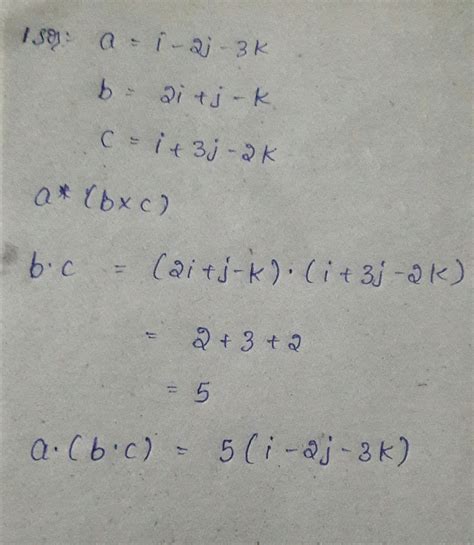 a = i - 2j - 3k
b = 2i + j - k
c = i + 3j - 2k
a* (b×c)
b·c = (2i+j-k)·(i+3j-2k)
= 2+3+2
= 5
a·(b·c) = 5(i-2j-3k)